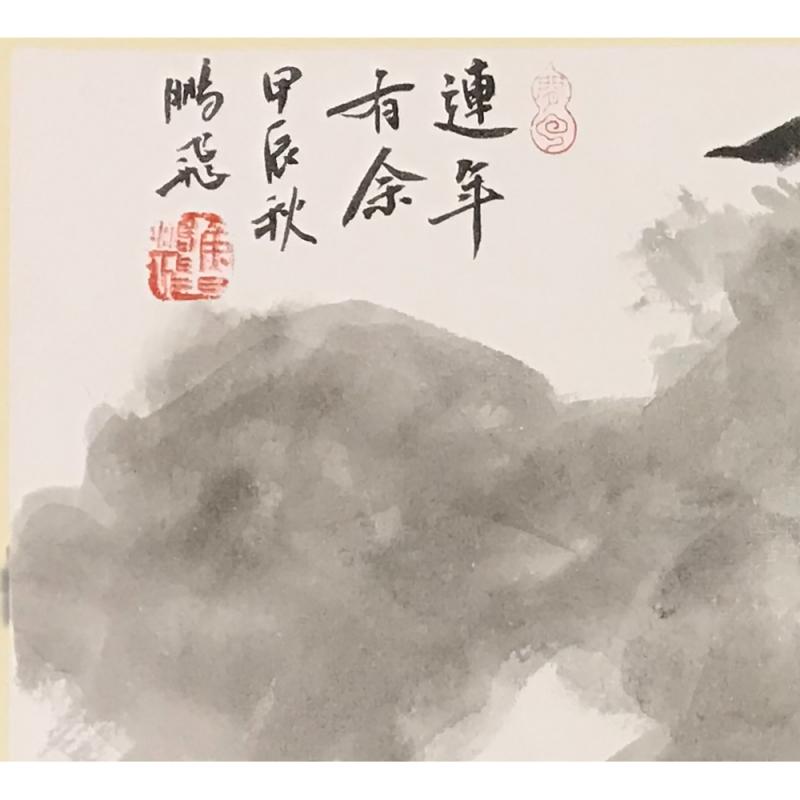 連年
有余
甲辰秋
鵬飛